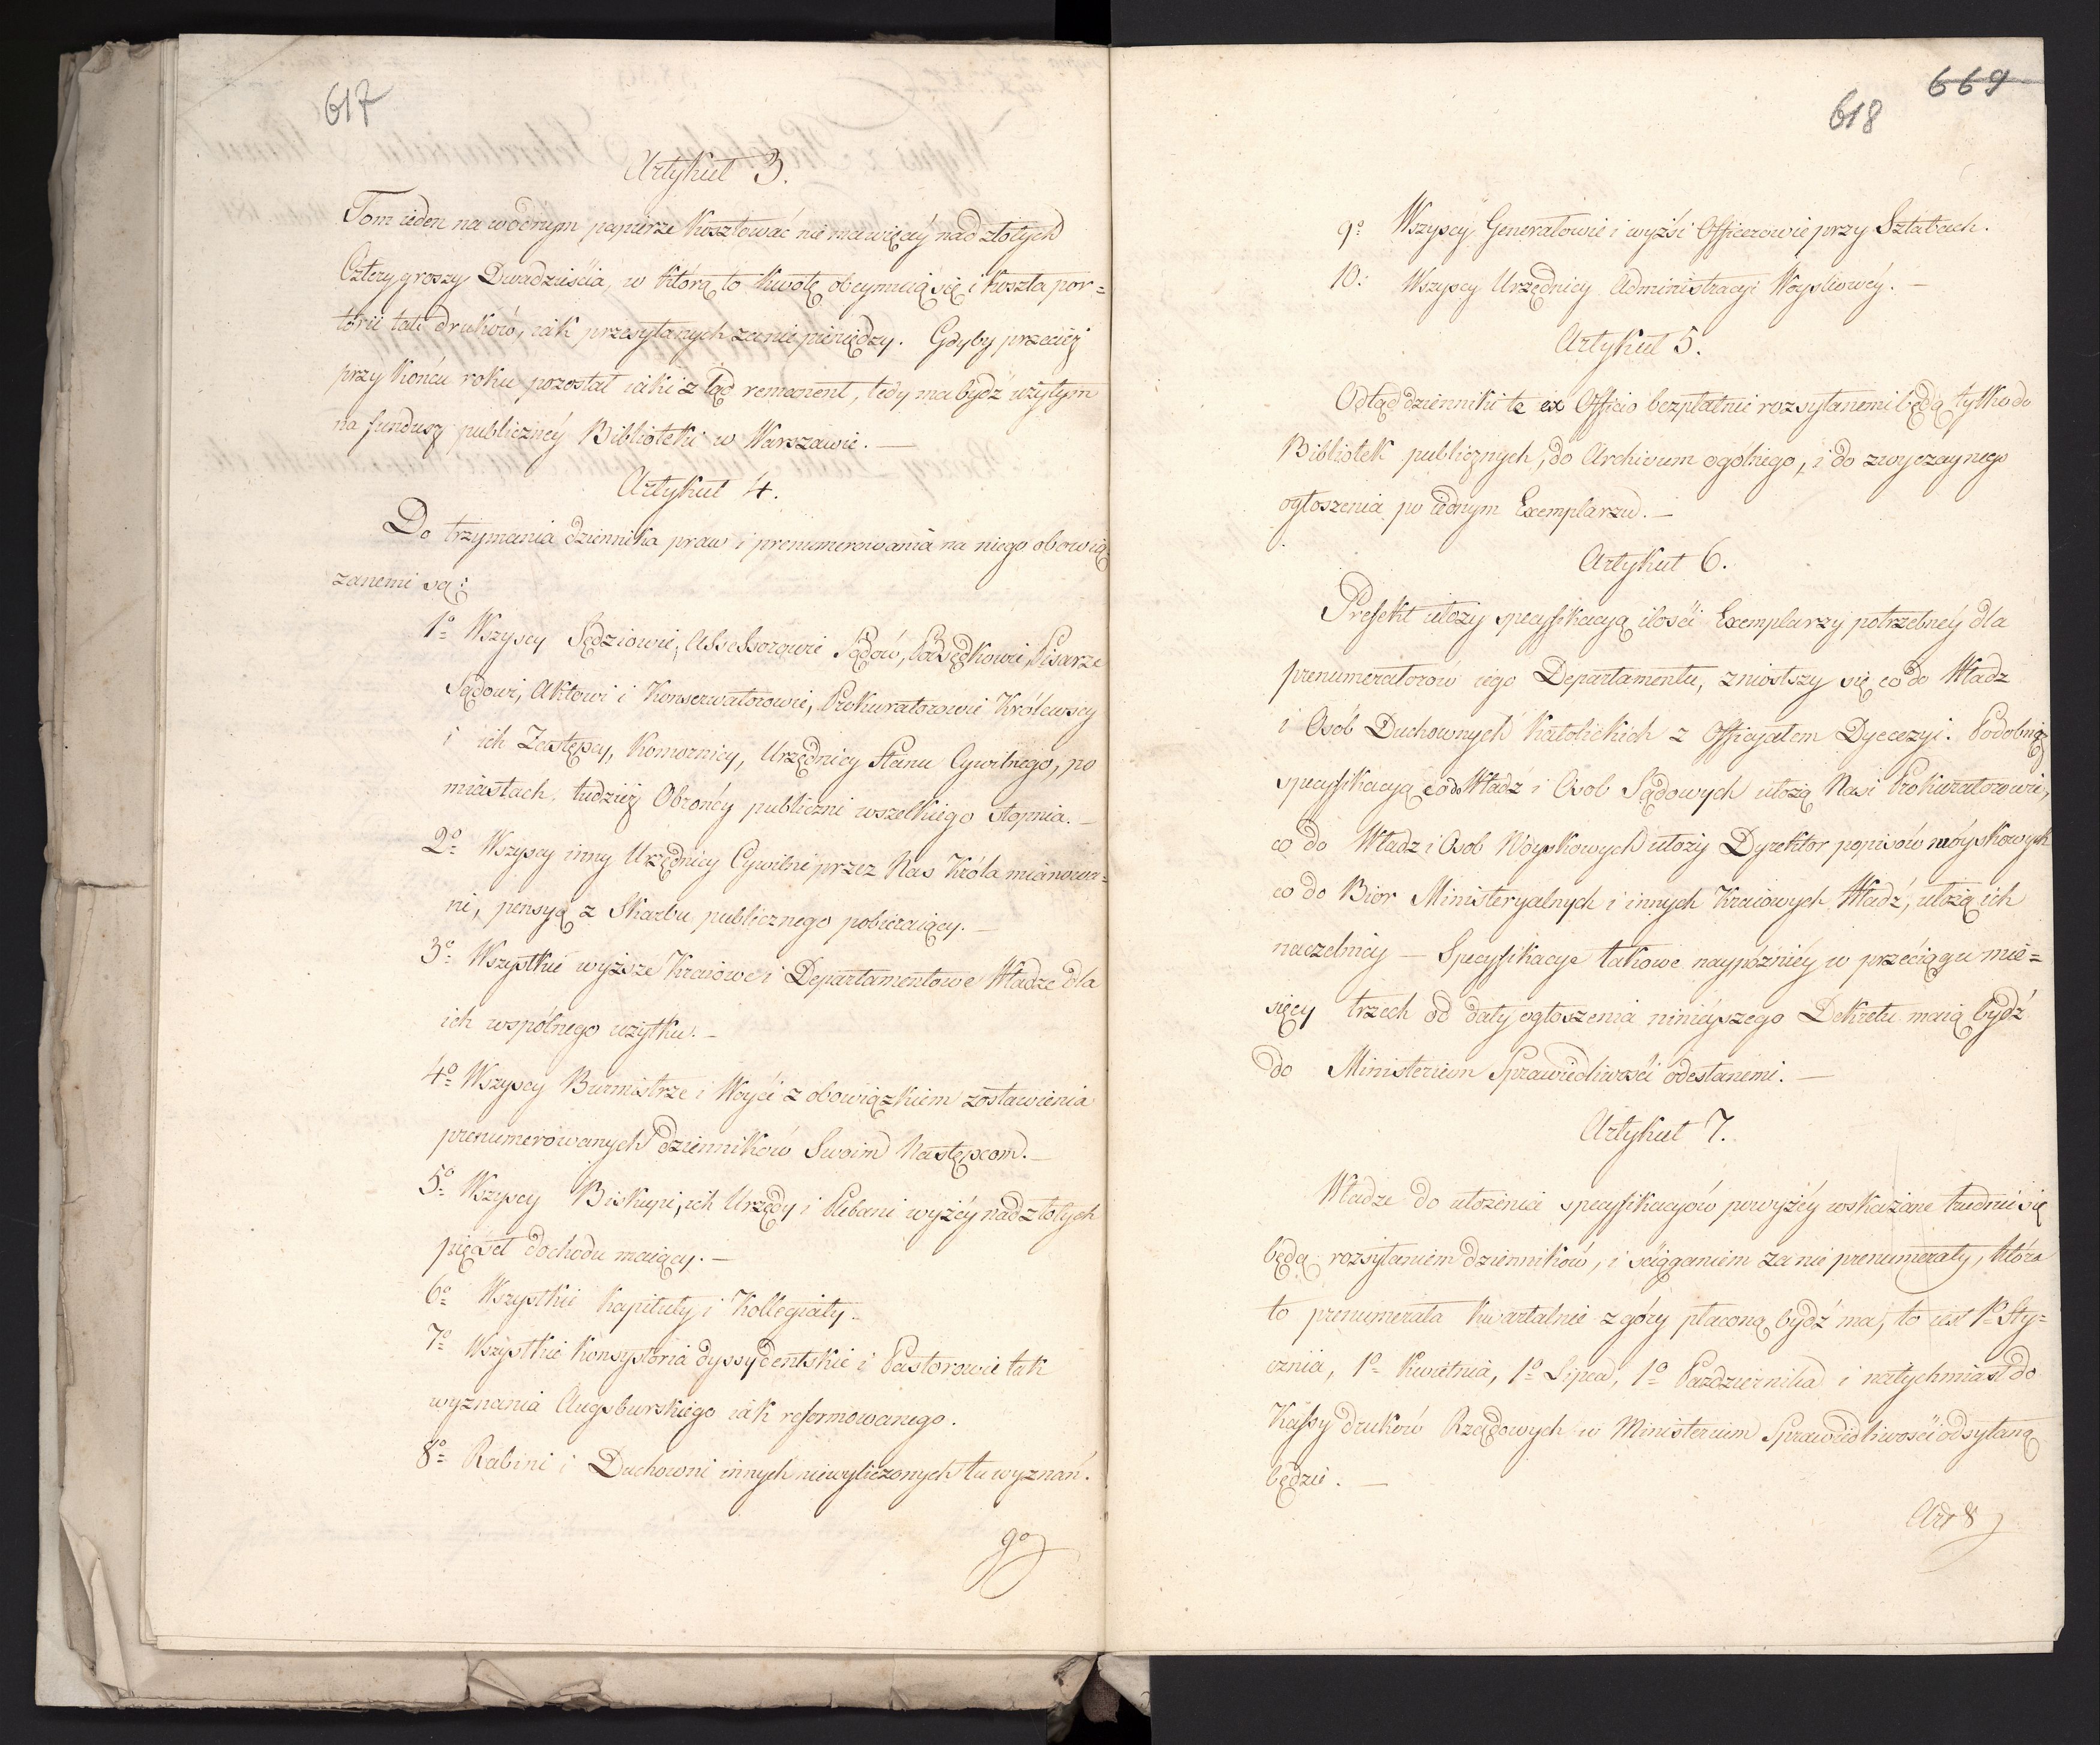 617
Artykuł 3.
Tom ieden na wodnym papierze kosztować nie ma więcéy nad złotych
Cztery groszy Dwadzieścia, w którą to kwotę obeymuią się i koszta por=
torii tak druków, iak przesyłanych za nie pieniędzy. Gdyby przecież
przy końcu roku pozostał iaki z tąd remanent, tedy ma bydź użytym
na fundusz publicznéy Biblioteki w Warszawie. —
Artykuł 4.
Do trzymania dziennika praw i prenumerowania na niego obowią=
zanemi są:
1º Wszyscy Sędziowie, Assessorowie Sądów, Podsędkowie, Pisarze
Sądowi, Aktowi i Konserwatorowie, Prokuratorowie Królewscy
i ich Zastępcy, Komornicy, Urzędnicy Stanu Cywilnego, po
miastach, tudzież Obrońcy publiczni wszelkiego stopnia. —
2º Wszyscy inny Urzędnicy Cywilni przez Nas Króla mianowa=
ni, pensyą z Skarbu publicznego pobieraiący. —
3º Wszystkie wyższe Kraiowe i Departamentowe Władze dla
ich wspólnego użytku. —
4º Wszyscy Burmistrze i Woyći z obowiązkiem zostawienia
prenumerowanych dzienników Swoim Następcom. —
5º Wszyscy Biskupi, ich Urzędy i Plebani wyżéy nad złotych
pięćset dochodu maiący. —
6º Wszystkie Kapituły i Kollegiaty.
7º Wszystkie Konsystoria dyssydentskie i Pastorowie tak
wyznania Augsburskiego iak reformowanego.
8º Rabini i Duchowni innych niewyliczonych tu wyznań.
9º
669
618
9º Wszyscy Generałowie i wyżśi Officerowie przy Sztabach.
10: Wszyscy Urzędnicy Administracyi Woyskowéy. —
Artykuł 5.
Odtąd dzienniki te ex Officio bezpłatnie rozsyłanemi będą tylko do
Bibliotek publicznych, do Archivum ogólnego, i do zwyczaynego
ogłoszenia po iednym Exemplarzu. —
Artykuł 6.
Prefekt ułoży specyfikacyą ilośći Exemplarzy potrzebnéy dla
prenumeratorów iego Departamentu, zniosłszy się co do Władz
i Osób Duchownych Katolickich z Officyałem Dyecezyi. Podobnąż
specyfikacyą co do Władz i Osob Sądowych ułożą Nasi Prokuratorowie,
co do Władz i Osob Woyskowych ułoży Dyrektor popisów woyskowych
co do Biór Ministeryalnych i innych Kraiowych Władz, ułożą ich
naczelnicy — Specyfikacye takowe naypóźniéy w przećiągu mie=
sięcy trzech od daty ogłoszenia ninieyszego Dekretu maią bydź
do Ministerium Sprawiedliwośći odesłanemi. —
Artykuł 7.
Władze do ułożenia specyfikacyów powyżéy wskazane trudnić się
będą rozsyłaniem dzienników, i śćiąganiem za nie prenumeraty, która
to prenumerata kwartalnie z góry płaconą bydź ma, to iest 1º Sty=
cznia, 1º Kwietnia, 1º Lipca, 1º Października i natychmiast do
Kassy druków Rządowych w Ministerium Sprawiedliwośći odsyłaną
będzie. —
Art 8